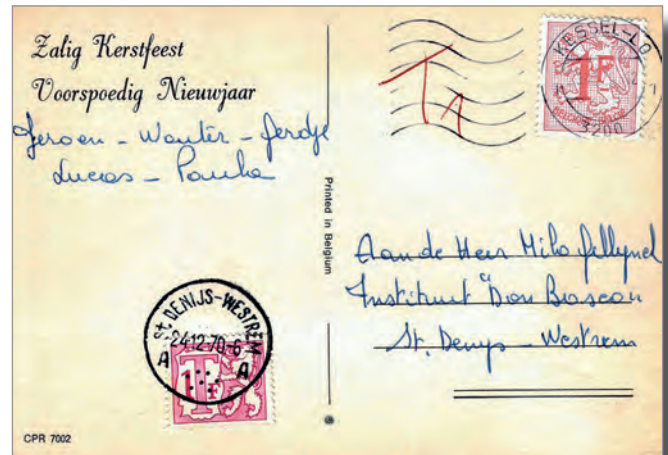 Zalig Kerstfeest
Voorspoedig Nieuwjaar
Jeroen - Wouter -
Lucas -
Printed in Belgium
T1
KESSEL-LO
3200
1F
Aan de Heer Milo
Instituut Don Bosco
St. Denys - Westrem
St DENIJS-WESTREM
-24.12.70-6
A A
1 T F
CPR 7002